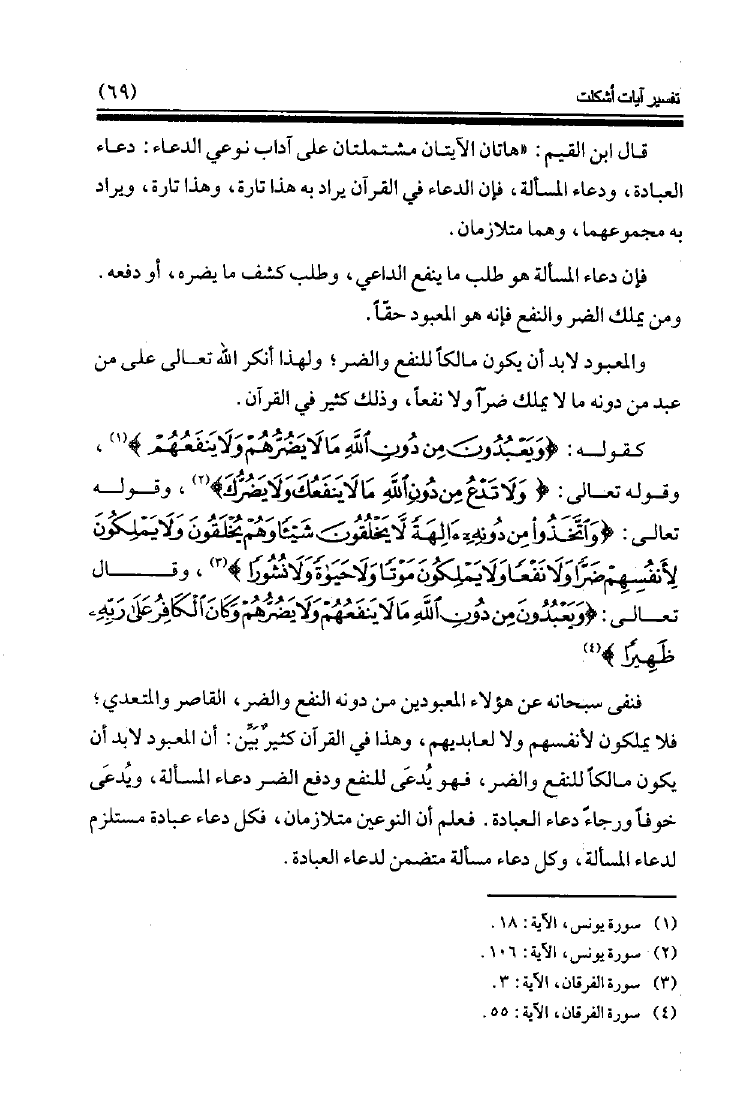 تفسير آيات أشكلت (٦٩)
قال ابن القيم: «هاتان الآيتان مشتملتان على آداب نوعي الدعاء: دعاء
العبادة، ودعاء المسألة، فإن الدعاء في القرآن يراد به هذا تارة، وهذا تارة، ويراد
به مجموعهما، وهما متلازمان.
فإن دعاء المسألة هو طلب ما ينفع الداعي، وطلب كشف ما يضره، أو دفعه.
ومن يملك الضر والنفع فإنه هو المعبود حقّاً.
والمعبود لابد أن يكون مالكاً للنفع والضر؛ ولهذا أنكر الله تعالى على من
عبد من دونه ما لا يملك ضرّاً ولا نفعاً، وذلك كثير في القرآن.
كقوله: ﴿وَيَعْبُدُونَ مِن دُونِ ٱللَّهِ مَا لَا يَضُرُّهُمْ وَلَا يَنفَعُهُمْ﴾(١)،
وقوله تعالى: ﴿وَلَا تَدْعُ مِن دُونِ ٱللَّهِ مَا لَا يَنفَعُكَ وَلَا يَضُرُّكَ﴾(٢)، وقوله
تعالى: ﴿وَٱتَّخَذُوا۟ مِن دُونِهِۦٓ ءَالِهَةً لَّا يَخْلُقُونَ شَيْـًٔا وَهُمْ يُخْلَقُونَ وَلَا يَمْلِكُونَ
لِأَنفُسِهِمْ ضَرًّا وَلَا نَفْعًا وَلَا يَمْلِكُونَ مَوْتًا وَلَا حَيَوٰةً وَلَا نُشُورًا﴾(٣)، وقال
تعالى: ﴿وَيَعْبُدُونَ مِن دُونِ ٱللَّهِ مَا لَا يَنفَعُهُمْ وَلَا يَضُرُّهُمْ وَكَانَ ٱلْكَافِرُ عَلَىٰ رَبِّهِۦ
ظَهِيرًا﴾(٤)
فنفى سبحانه عن هؤلاء المعبودين من دونه النفع والضر، القاصر والمتعدي؛
فلا يملكون لأنفسهم ولا لعابديهم، وهذا في القرآن كثيرٌ بَيِّن: أن المعبود لابد أن
يكون مالكاً للنفع والضر، فهو يُدعَى للنفع ودفع الضر دعاء المسألة، ويُدعَى
خوفاً ورجاءً دعاء العبادة. فعلم أن النوعين متلازمان، فكل دعاء عبادة مستلزم
لدعاء المسألة، وكل دعاء مسألة متضمن لدعاء العبادة.
(١) سورة يونس، الآية: ١٨.
(٢) سورة يونس، الآية: ١٠٦.
(٣) سورة الفرقان، الآية: ٣.
(٤) سورة الفرقان، الآية: ٥٥.